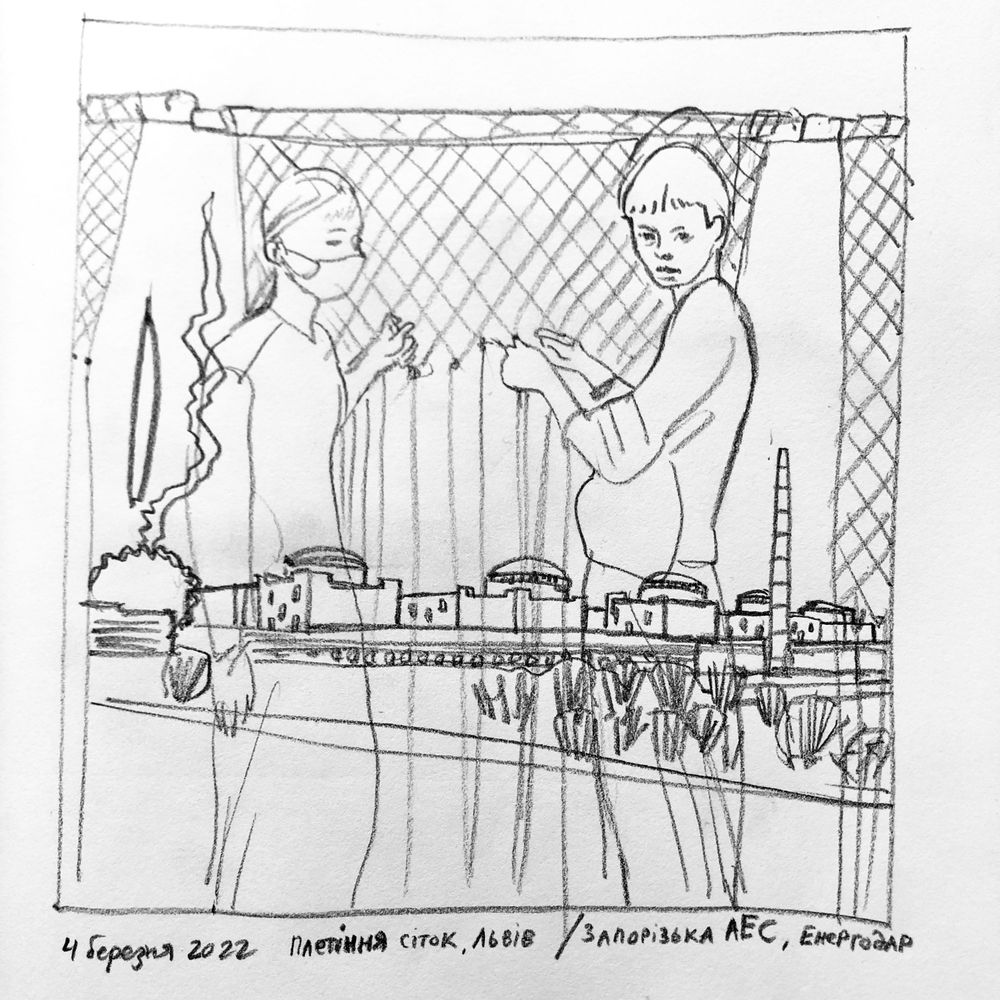 4 березня 2022 Плетіння сіток, Львів / Запорізька АЕС, Енергодар